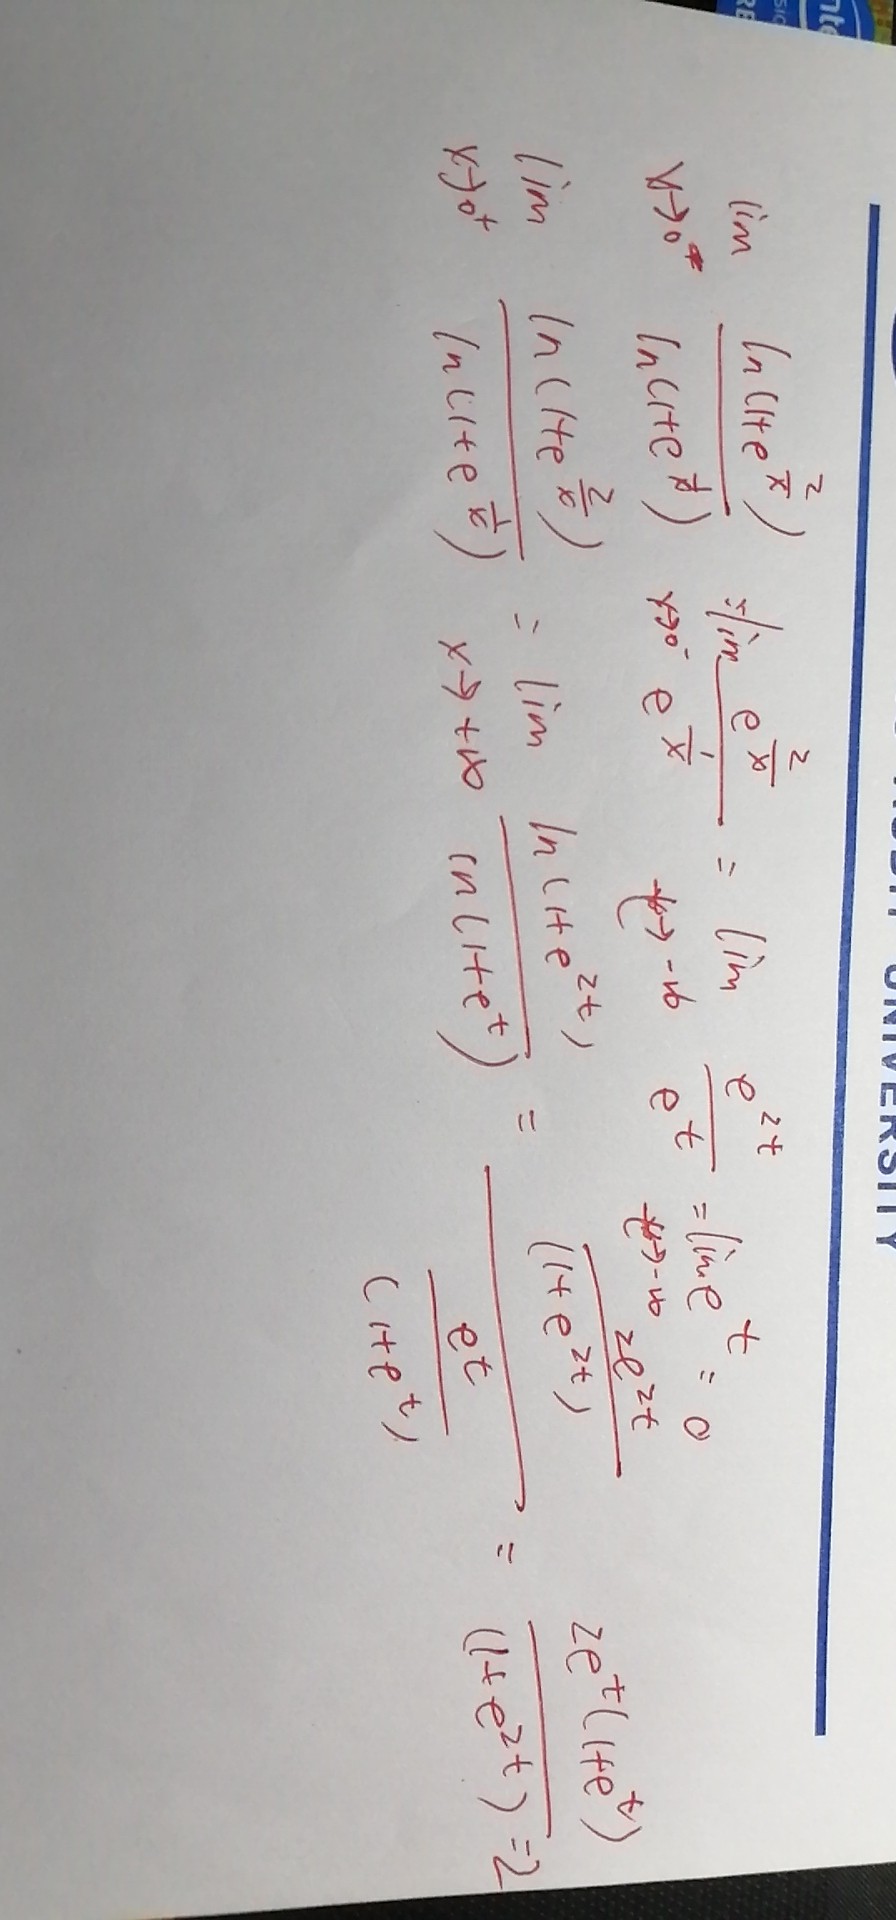 UNIVERSITY
lim_{x→0^-} \frac{ln(1+e^{\frac{2}{x}})}{ln(1+e^{\frac{1}{x}})} = lim_{x→0^-} \frac{e^{\frac{2}{x}}}{e^{\frac{1}{x}}} = lim_{t→-∞} \frac{e^{2t}}{e^{t}} = lim_{t→-∞} e^{t} = 0
lim_{x→0^+} \frac{ln(1+e^{\frac{2}{x}})}{ln(1+e^{\frac{1}{x}})} = lim_{x→+∞} \frac{ln(1+e^{2t})}{ln(1+e^{t})} = \frac{\frac{2e^{2t}}{(1+e^{2t})}}{\frac{e^{t}}{(1+e^{t})}} = \frac{2e^{t}(1+e^{t})}{(1+e^{2t})} = 2